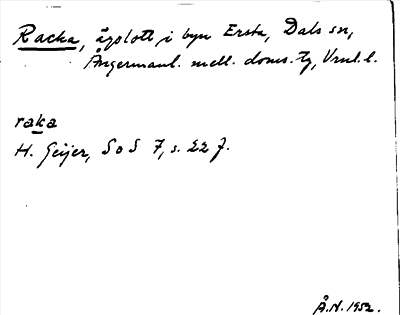 Racka, ägolott i byn Ersta, Dals sn,
Ångermanl. mell. doms. tg, Vnl. l.
raka
H. Geijer, SoS 7, s. 22 f.
Å.N. 1952.